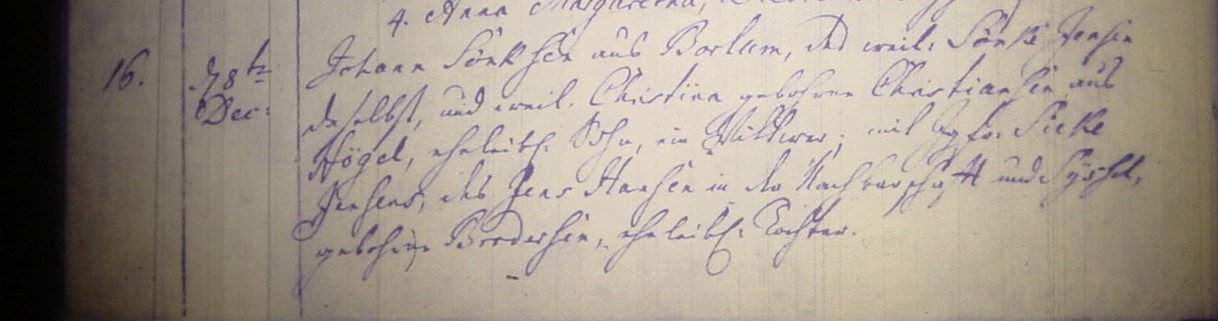 4. Anna Margaretha,
16. d 8te Johann Sönksen aus Borlum, des weil. Sönke Jensen
Dec: daselbst, und weil. Christina gebohrne Christiansen aus
Högel, eheleibl. Sohn, ein Wittwer; mit Jgfr. Sieke
Jensens, des Jens Hansen in der Nachbarschaft und
gebohrne Brodersen, eheleibl. Tochter.